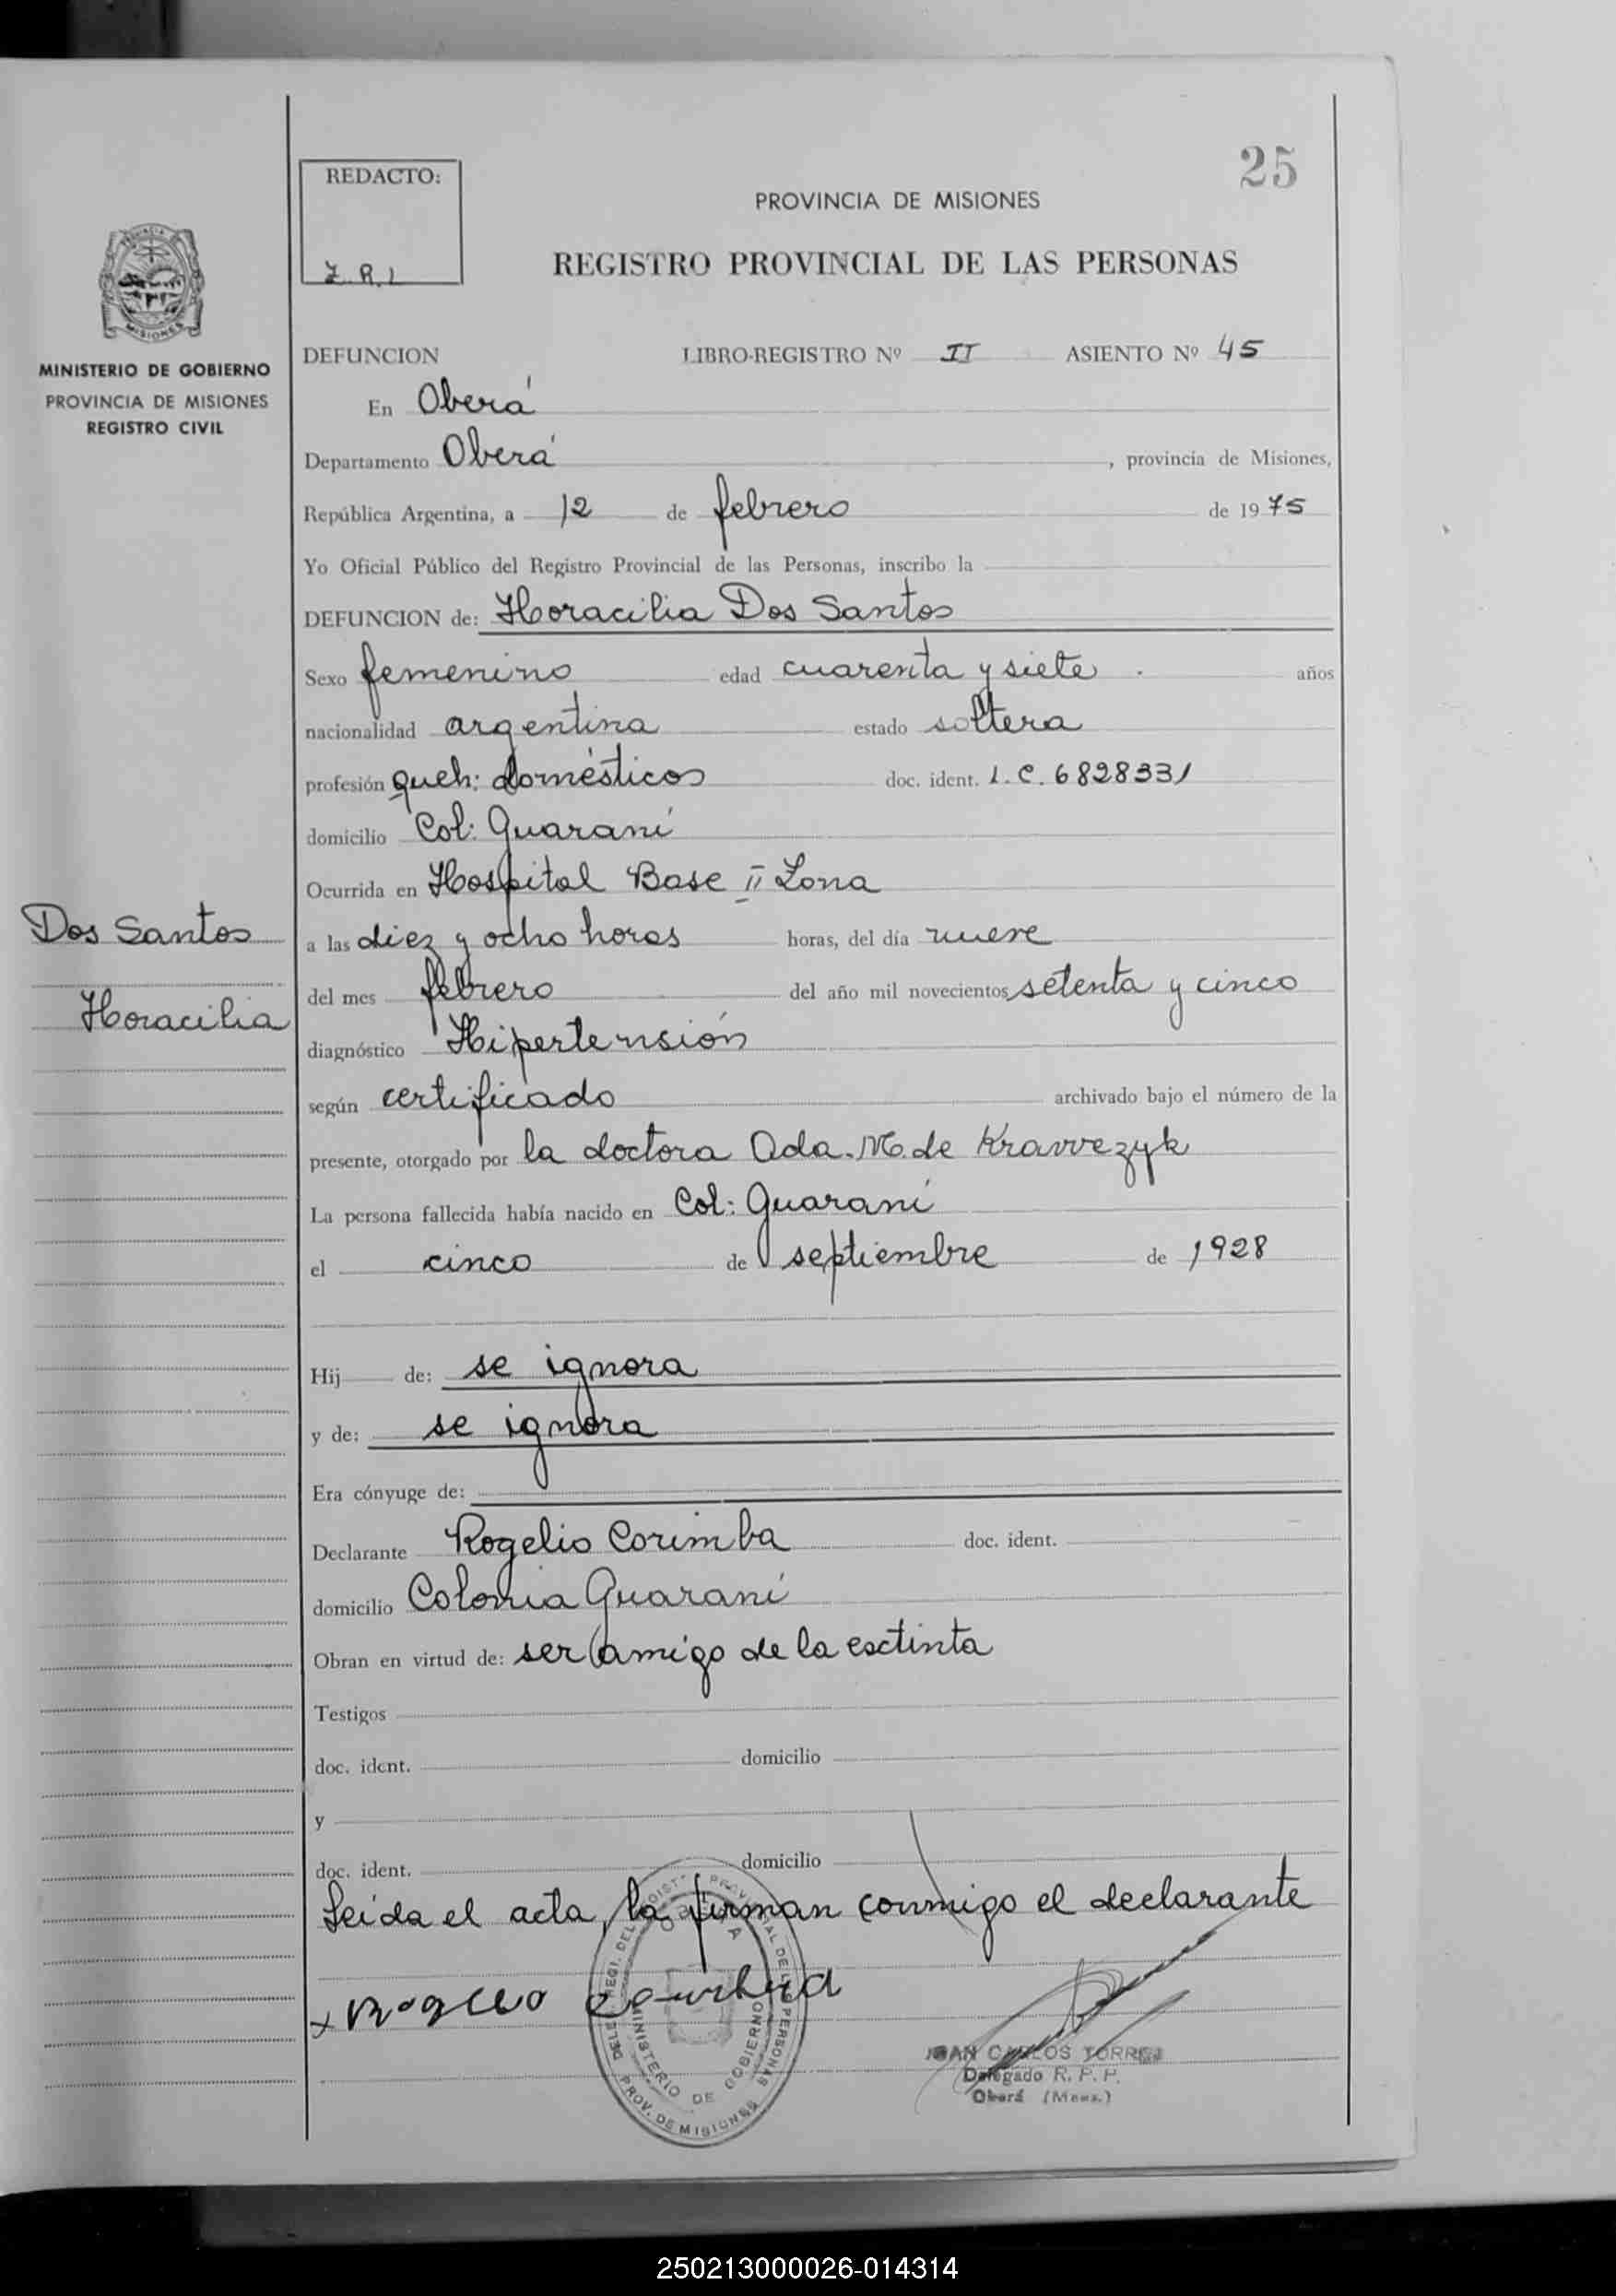 25
REDACTO:
Z.R.L
PROVINCIA DE MISIONES
REGISTRO PROVINCIAL DE LAS PERSONAS
MISIONES
MINISTERIO DE GOBIERNO
PROVINCIA DE MISIONES
REGISTRO CIVIL
DEFUNCION LIBRO-REGISTRO Nº II ASIENTO Nº 45
En Oberá
Departamento Oberá , provincia de Misiones,
República Argentina, a 12 de febrero de 1975
Yo Oficial Público del Registro Provincial de las Personas, inscribo la
DEFUNCION de: Horacilia Dos Santos
Sexo femenino edad cuarenta y siete . años
nacionalidad argentina estado soltera
profesión queh: domésticos doc. ident. L.C. 6828331
domicilio Col: Guaraní
Ocurrida en Hospital Base II Zona
Dos Santos
a las diez y ocho horas horas, del día nueve
Horacilia
del mes febrero del año mil novecientos setenta y cinco
diagnóstico Hipertensión
según certificado archivado bajo el número de la
presente, otorgado por la doctora Oda. M. de Kravvezyk
La persona fallecida había nacido en Col: Guaraní
el cinco de septiembre de 1928
Hij de: se ignora
y de: se ignora
Era cónyuge de:
Declarante Rogelio Corimba doc. ident.
domicilio Colonia Guaraní
Obran en virtud de: ser amigo de la esctinta
Testigos
doc. ident. domicilio
y
doc. ident. domicilio
Leída el acta, la firman conmigo el declarante
DELEG. REGI. DEL REGIST. PROVINCIAL DE LAS PERSONAS
OBERA
MINISTERIO DE GOBIERNO
PROV. DE MISIONES
JUAN CARLOS TORRES
Delegado R. P. P.
Oberá (Mnes.)
250213000026-014314